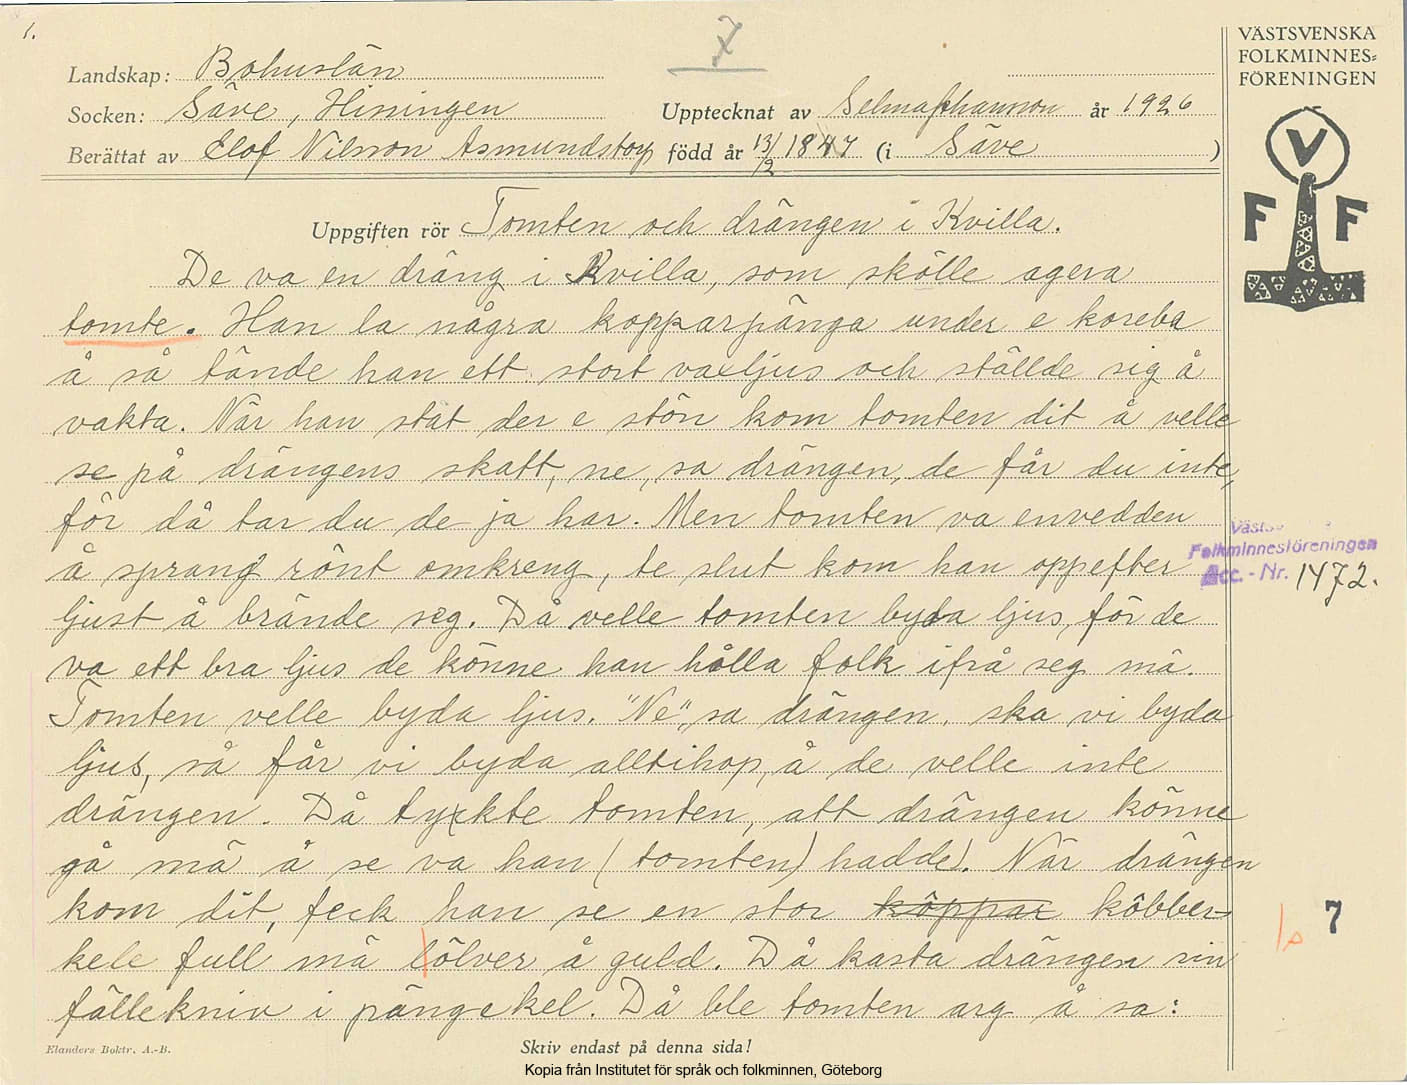 1.
7
VÄSTSVENSKA
FOLKMINNES=
FÖRENINGEN
Landskap: Bohuslän
Socken: Säve, Hisingen Upptecknat av Selma Johansson år 1926
Berättat av Elof Nilsson Asmundstorp född år 13/2 1847 (i Säve)
V
F F
Uppgiften rör Tomten och drängen i Kvilla.
De va en dräng i Kvilla, som skôlle agera
tomte. Han la några kopparpänga under e koreba
å så tände han ett stort vaxljus och ställde sig å
vakta. När han stât der e stôn kom tomten dit å velle
se på drängens skatt, ne, sa drängen, de får du inte,
för då tar du de ja har. Men tomten va envedden
å sprang rônt omkreng, te slut kom han oppefter
ljust å brände seg. Då velle tomten byda ljus, för de
va ett bra ljus de kônne han hålla folk ifrå seg mä.
Tomten velle byda ljus. "Ne", sa drängen, ska vi byda
ljus, så får vi byda alltihop, å de velle inte
drängen. Då tyckte tomten, att drängen kônne
gå mä å se va han (tomten) hadde). När drängen
kom dit, feck han se en stor kôppar kôbber-
kele full mä sôlver å guld. Då kasta drängen sin
fällekniv i pängekel. Då ble tomten arg å sa:
Folkminnesföreningen
Acc.-Nr. 1472.
7
Elanders Boktr. A.-B.
Skriv endast på denna sida!
Kopia från Institutet för språk och folkminnen, Göteborg